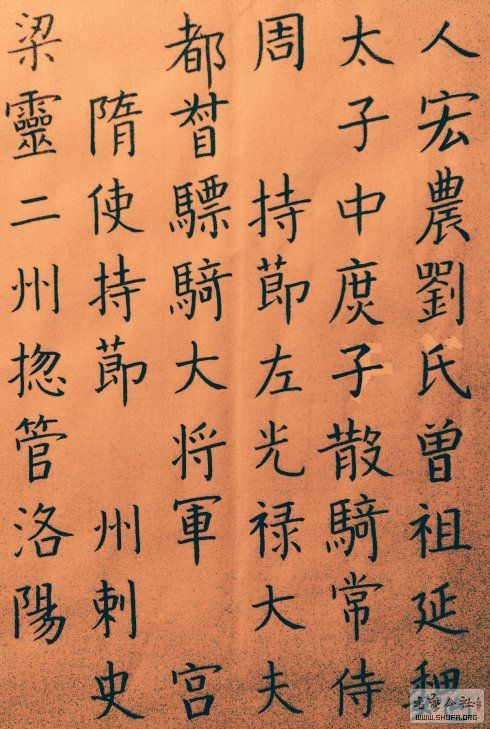 人宏農劉氏曾祖延
太子中庶子散騎常侍
周 持節左光禄大夫
都督驃騎大将軍 宮
隋使持節 州刺史
梁靈二州揔管洛陽
WWW.SHUFA.ORG